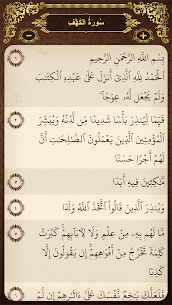 سُورَةُ الكَهۡفِ
بِسۡمِ ٱللَّهِ ٱلرَّحۡمَٰنِ ٱلرَّحِيمِ
ٱلۡحَمۡدُ لِلَّهِ ٱلَّذِيٓ أَنزَلَ عَلَىٰ عَبۡدِهِ ٱلۡكِتَٰبَ
وَلَمۡ يَجۡعَل لَّهُۥ عِوَجَاۜ ١
قَيِّمٗا لِّيُنذِرَ بَأۡسٗا شَدِيدٗا مِّن لَّدُنۡهُ وَيُبَشِّرَ
ٱلۡمُؤۡمِنِينَ ٱلَّذِينَ يَعۡمَلُونَ ٱلصَّٰلِحَٰتِ أَنَّ
لَهُمۡ أَجۡرًا حَسَنٗا ٢
مَّٰكِثِينَ فِيهِ أَبَدٗا ٣
وَيُنذِرَ ٱلَّذِينَ قَالُواْ ٱتَّخَذَ ٱللَّهُ وَلَدٗا ٤
مَّا لَهُم بِهِۦ مِنۡ عِلۡمٖ وَلَا لِأٓبَآئِهِمۡۚ كَبُرَتۡ
كَلِمَةٗ تَخۡرُجُ مِنۡ أَفۡوَٰهِهِمۡۚ إِن يَقُولُونَ إِلَّا
كَذِبٗا ٥
فَلَعَلَّكَ بَٰخِعٞ نَّفۡسَكَ عَلَىٰٓ ءَاثَٰرِهِمۡ إِن لَّمۡ